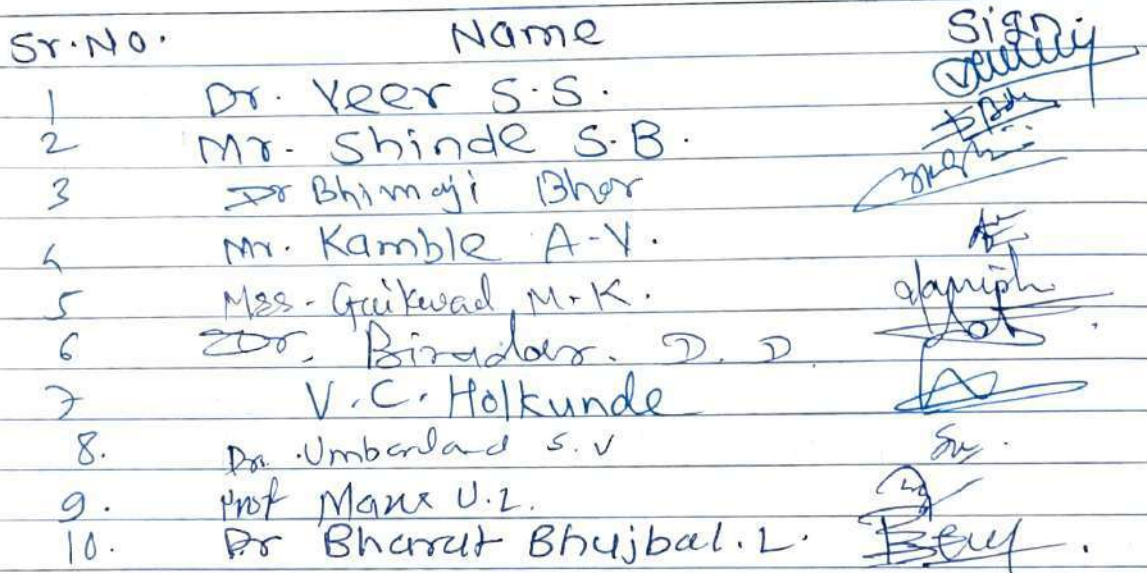 Sr.No. Name Sign
1 Dr. Veer S.S.
2 Mr. Shinde S.B.
3 Dr Bhimaji Bhor
4 Mr. Kamble A-V.
5 Mss. Gaikwad M.K.
6 Dr. Biradar. D. D
7 V.C. Holkunde
8. Dr. S.V
9. Prof Mane U.L.
10. Dr Bharat Bhujbal. L.